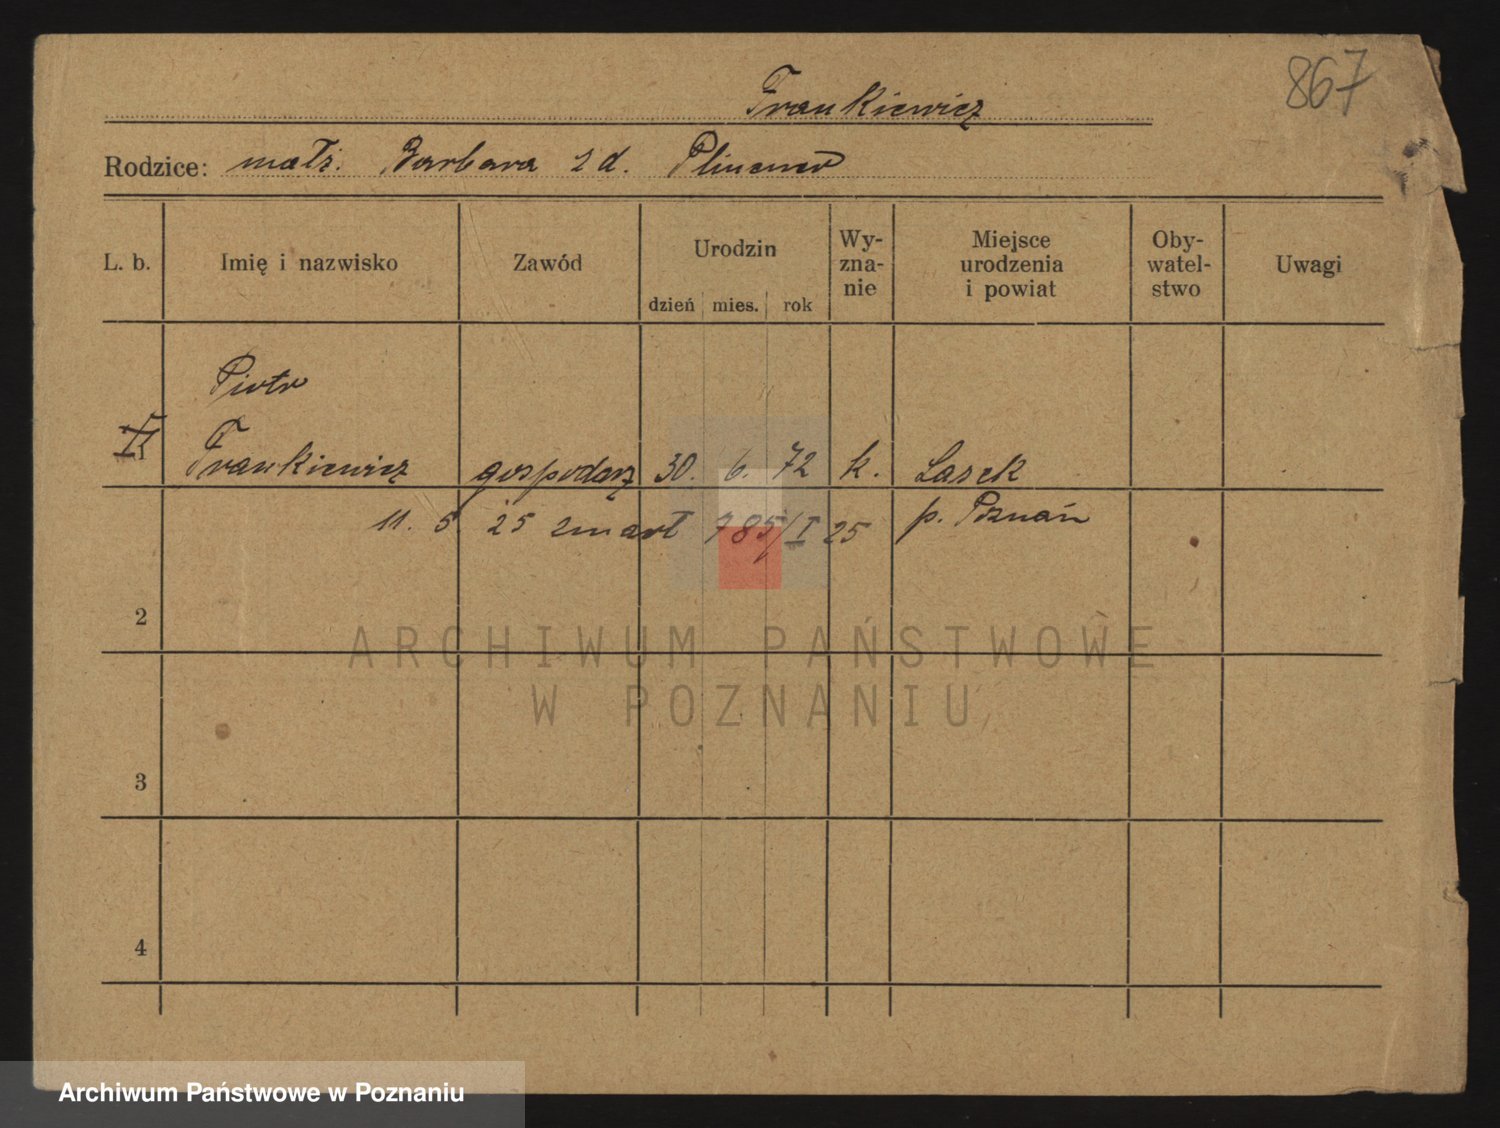 867
Frankiewicz
Rodzice: małż. Barbara z d.
L. b. Imię i nazwisko Zawód Urodzin Wy-zna-nie Miejsce urodzenia i powiat Oby-watel-stwo Uwagi
dzień mies. rok
Piotr
1 Frankiewicz gospodarz 30. 6. 72 k. Lasek
11. 5. 25 zmarł 785/I 25 p. Poznań
2
3
4
ARCHIWUM PAŃSTWOWE
W POZNANIU
Archiwum Państwowe w Poznaniu